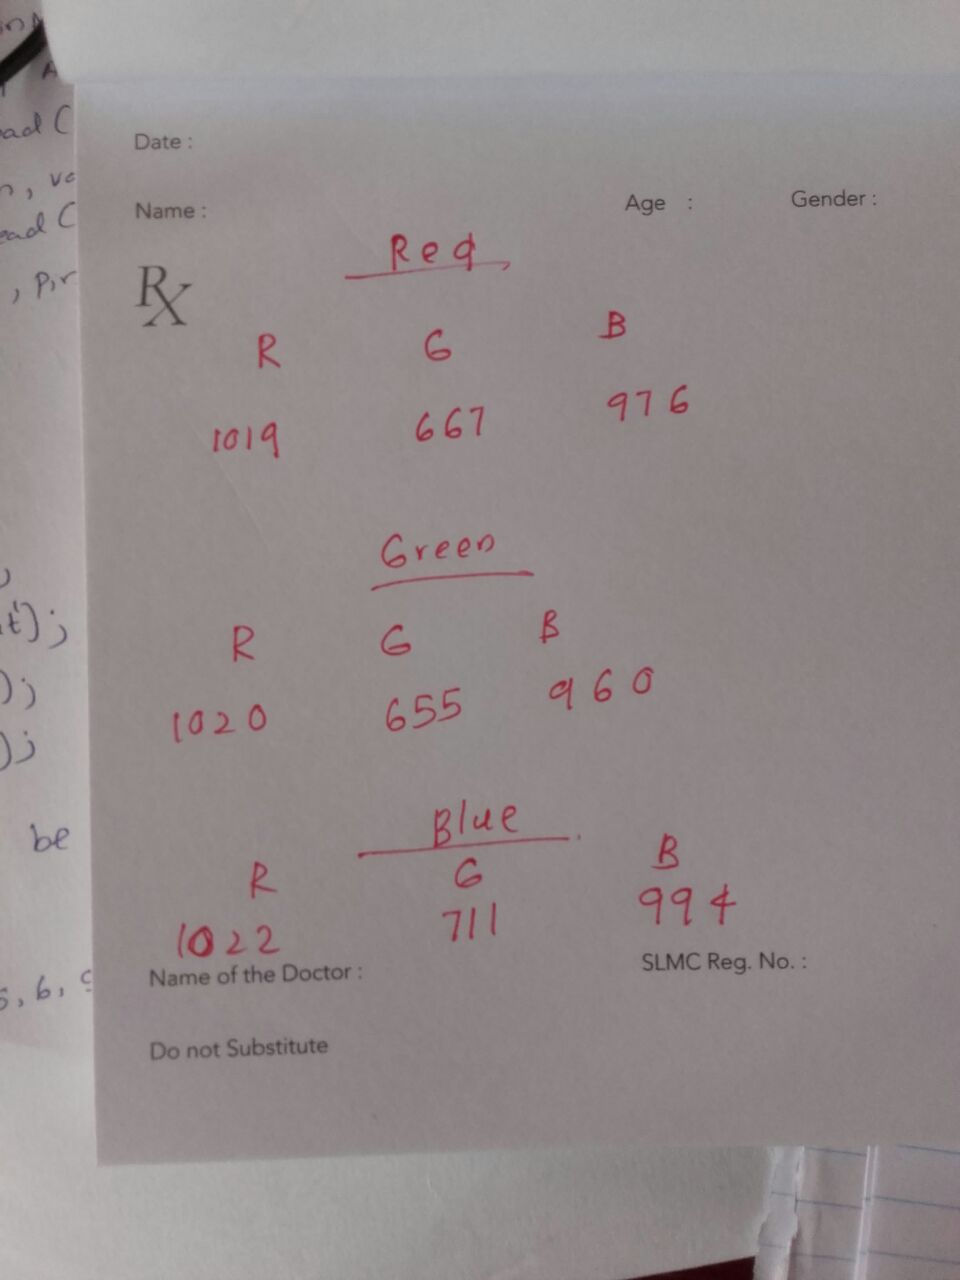 Date :
Name :
Age :
Gender :
Rx
Red
R G B
1019 667 976
Green
R G B
1020 655 960
Blue
R G B
1022 711 994
Name of the Doctor :
SLMC Reg. No. :
Do not Substitute
ead C
, Pir
be